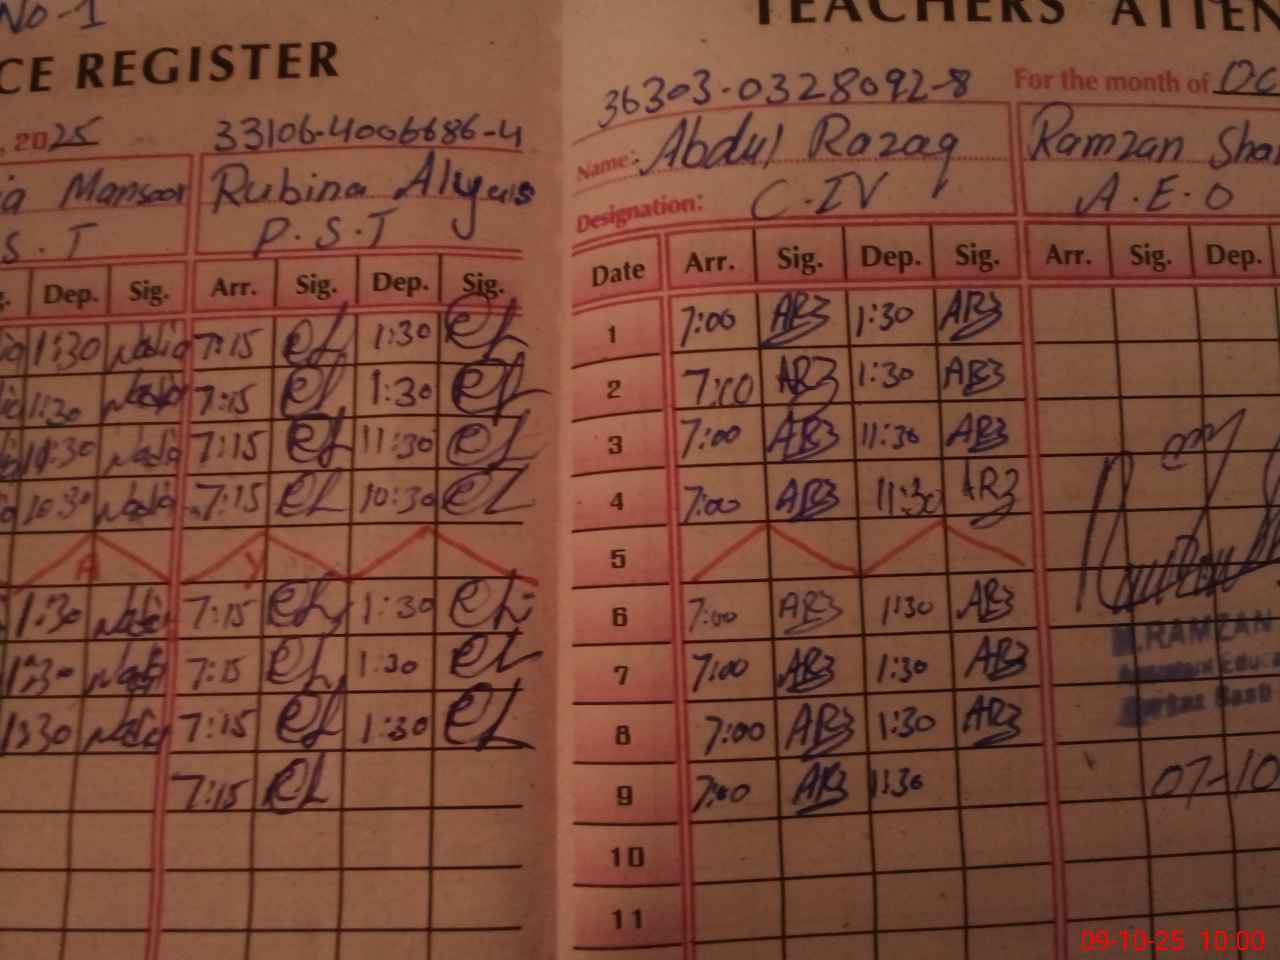 No-1
CE REGISTER
, 2025
33106-4006686-4
ia Mansoor
Rubina Alyas
S.T
P.S.T
g. Dep. Sig. Arr. Sig. Dep. Sig.
1:30 Nadia 7:15 1:30
1:30 7:15 1:30
7:15 11:30
10:30 Nadia 7:15 10:30
1:30 7:15 1:30
1:30 7:15 1:30
1:30 7:15 1:30
7:15
TEACHERS' ATTEN
36303-0328092-8
For the month of Oc
Name: Abdul Razaq
Ramzan Sha
Designation: C.IV
A.E.O
Date Arr. Sig. Dep. Sig. Arr. Sig. Dep.
1 7:00 AR3 1:30 AR3
2 7:00 AR3 1:30 AR3
3 7:00 AR3 11:30 AR3
4 7:00 AR3 11:30 AR3
5
6 7:00 AR3 1:30 AR3
7 7:00 AR3 1:30 AR3
8 7:00 AR3 1:30 AR3
9 7:00 AR3 1:30
10
11
RAMZAN
07-10
09-10-25 10:00